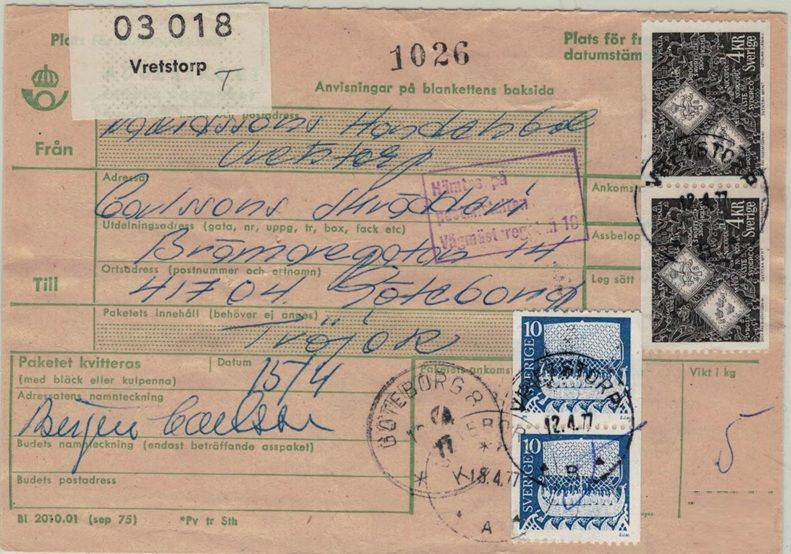 03 018
Vretstorp
T
1026
Anvisningar på blankettens baksida
Plats för fr
datumstäm
postadress
Från
Handels
Vretstorp
Adress
Carlssons Skrädderi
Utdelningsadress (gata, nr, uppg, tr, box, fack etc)
Brämaregatan 14
Ortsadress (postnummer och ortnamn)
Till
41704 Göteborg
Paketets innehåll (behöver ej anges)
Tröjor
Hämtas på
Vägmästareg
16
Ankoms
Assbelop
Leg sätt
4 KR
Sverige
VRETSTORP
12.4.77
4 KR
Sverige
Paketet kvitteras
(med bläck eller kulpenna)
Datum
15/4
Adressatens namnteckning
Carlsson
Budets namnteckning (endast beträffande asspaket)
Budets postadress
Bl 2010.01 (sep 75)
*Pv tr Sth
Paketets ankoms
Vikt i kg
5
GÖTEBORG 8
77
A
10
SVERIGE
VRETSTORP
12.4.77
B
10
SVERIGE